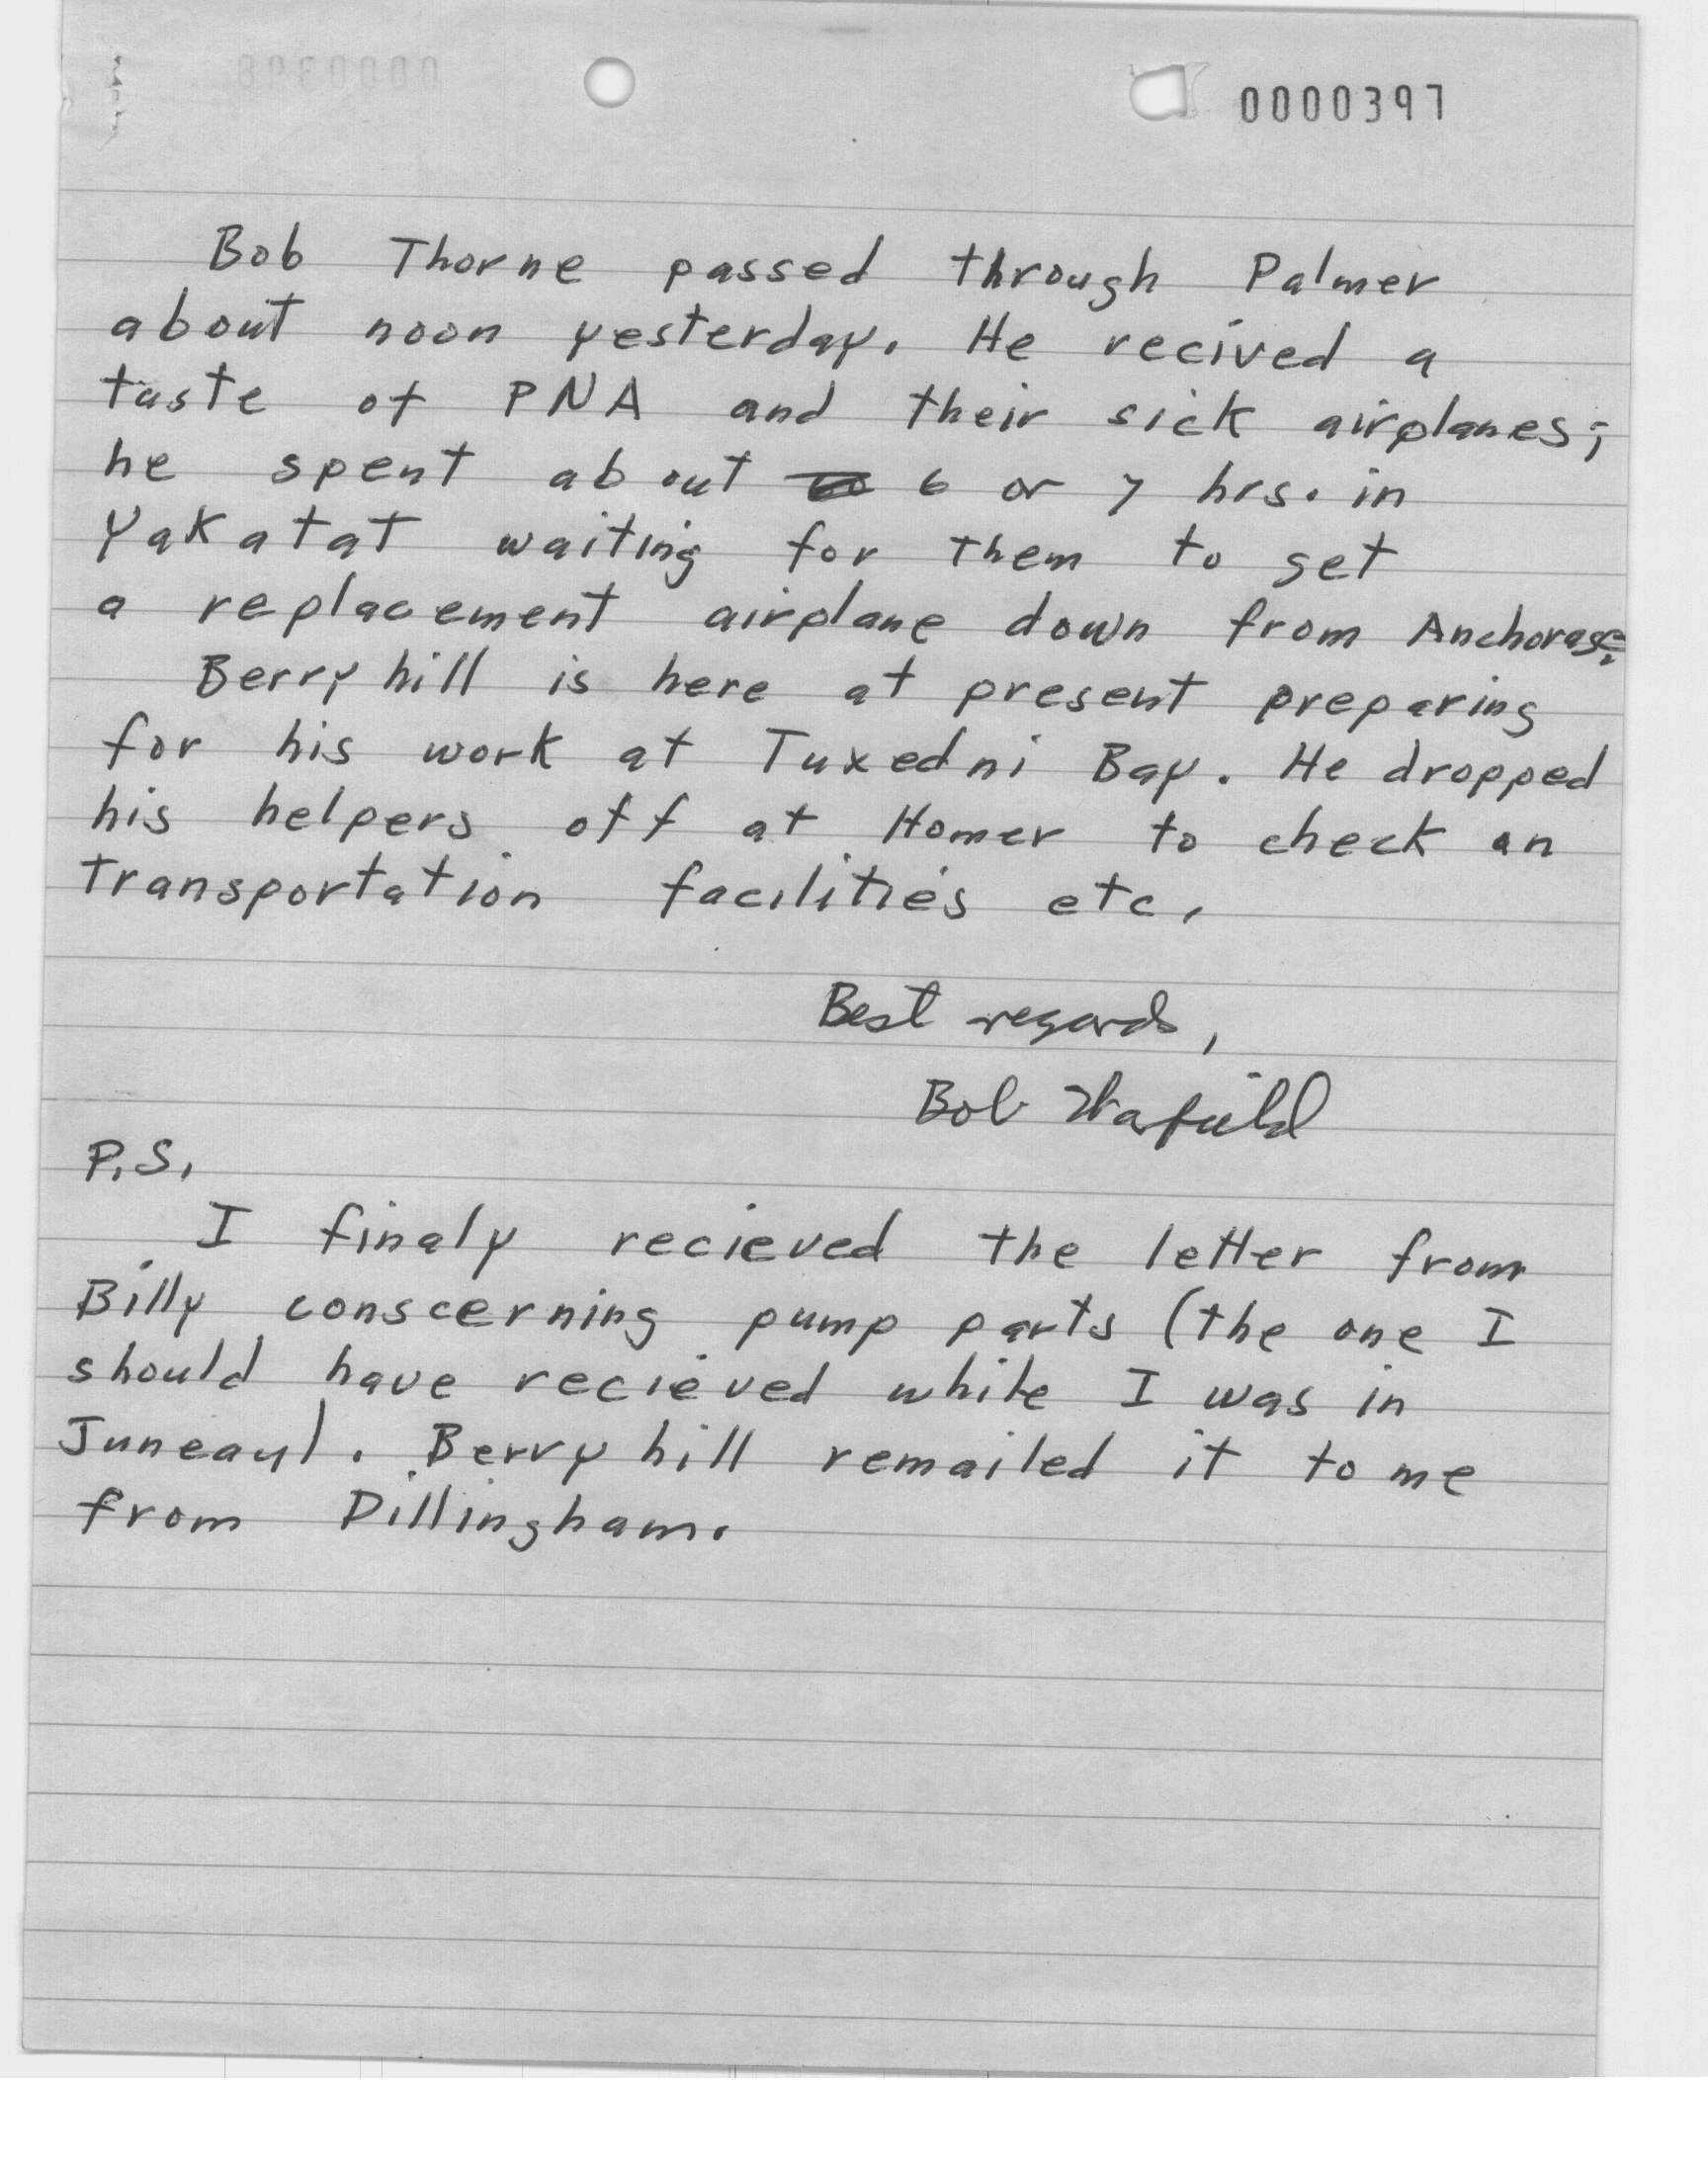 0000397
Bob Thorne passed through Palmer
about noon yesterday. He recived a
taste of PNA and their sick airplanes;
he spent about 6 or 7 hrs. in
Yakatat waiting for them to get
a replacement airplane down from Anchorage.
Berryhill is here at present preparing
for his work at Tuxedni Bay. He dropped
his helpers off at Homer to check on
transportation facilities etc.
Best regards,
Bob
P.S.
I finaly recieved the letter from
Billy conscerning pump parts (the one I
should have recieved while I was in
Juneau). Berryhill remailed it to me
from Dillingham.